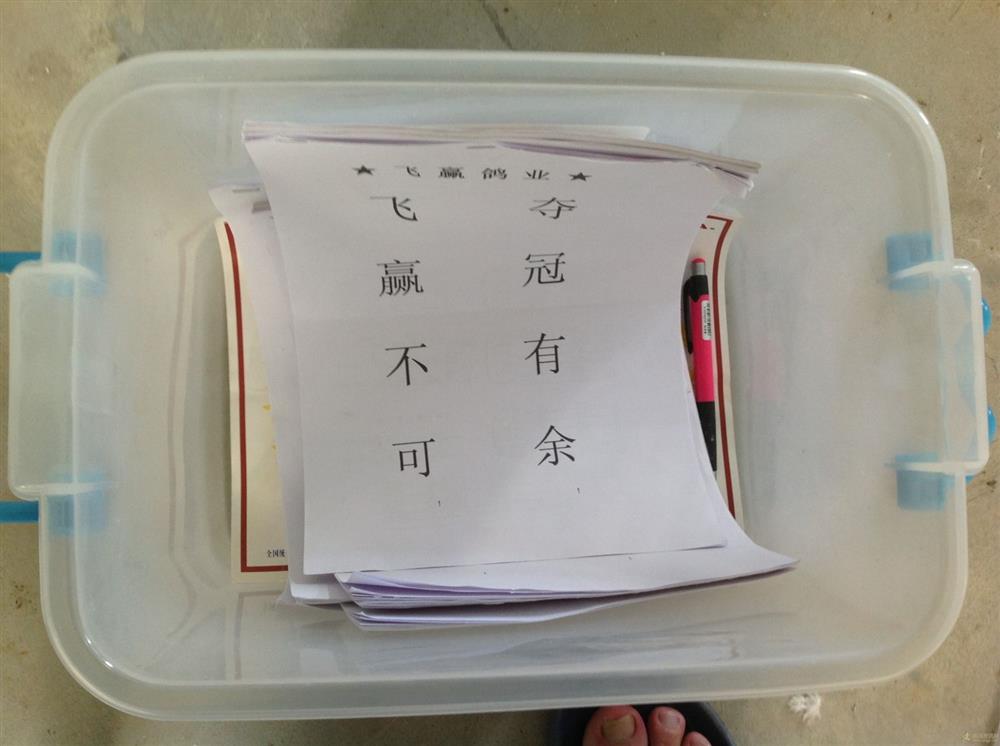 ★ 飞 赢 鸽 业 ★
飞 夺
赢 冠
不 有
可 余
1 1
全国统